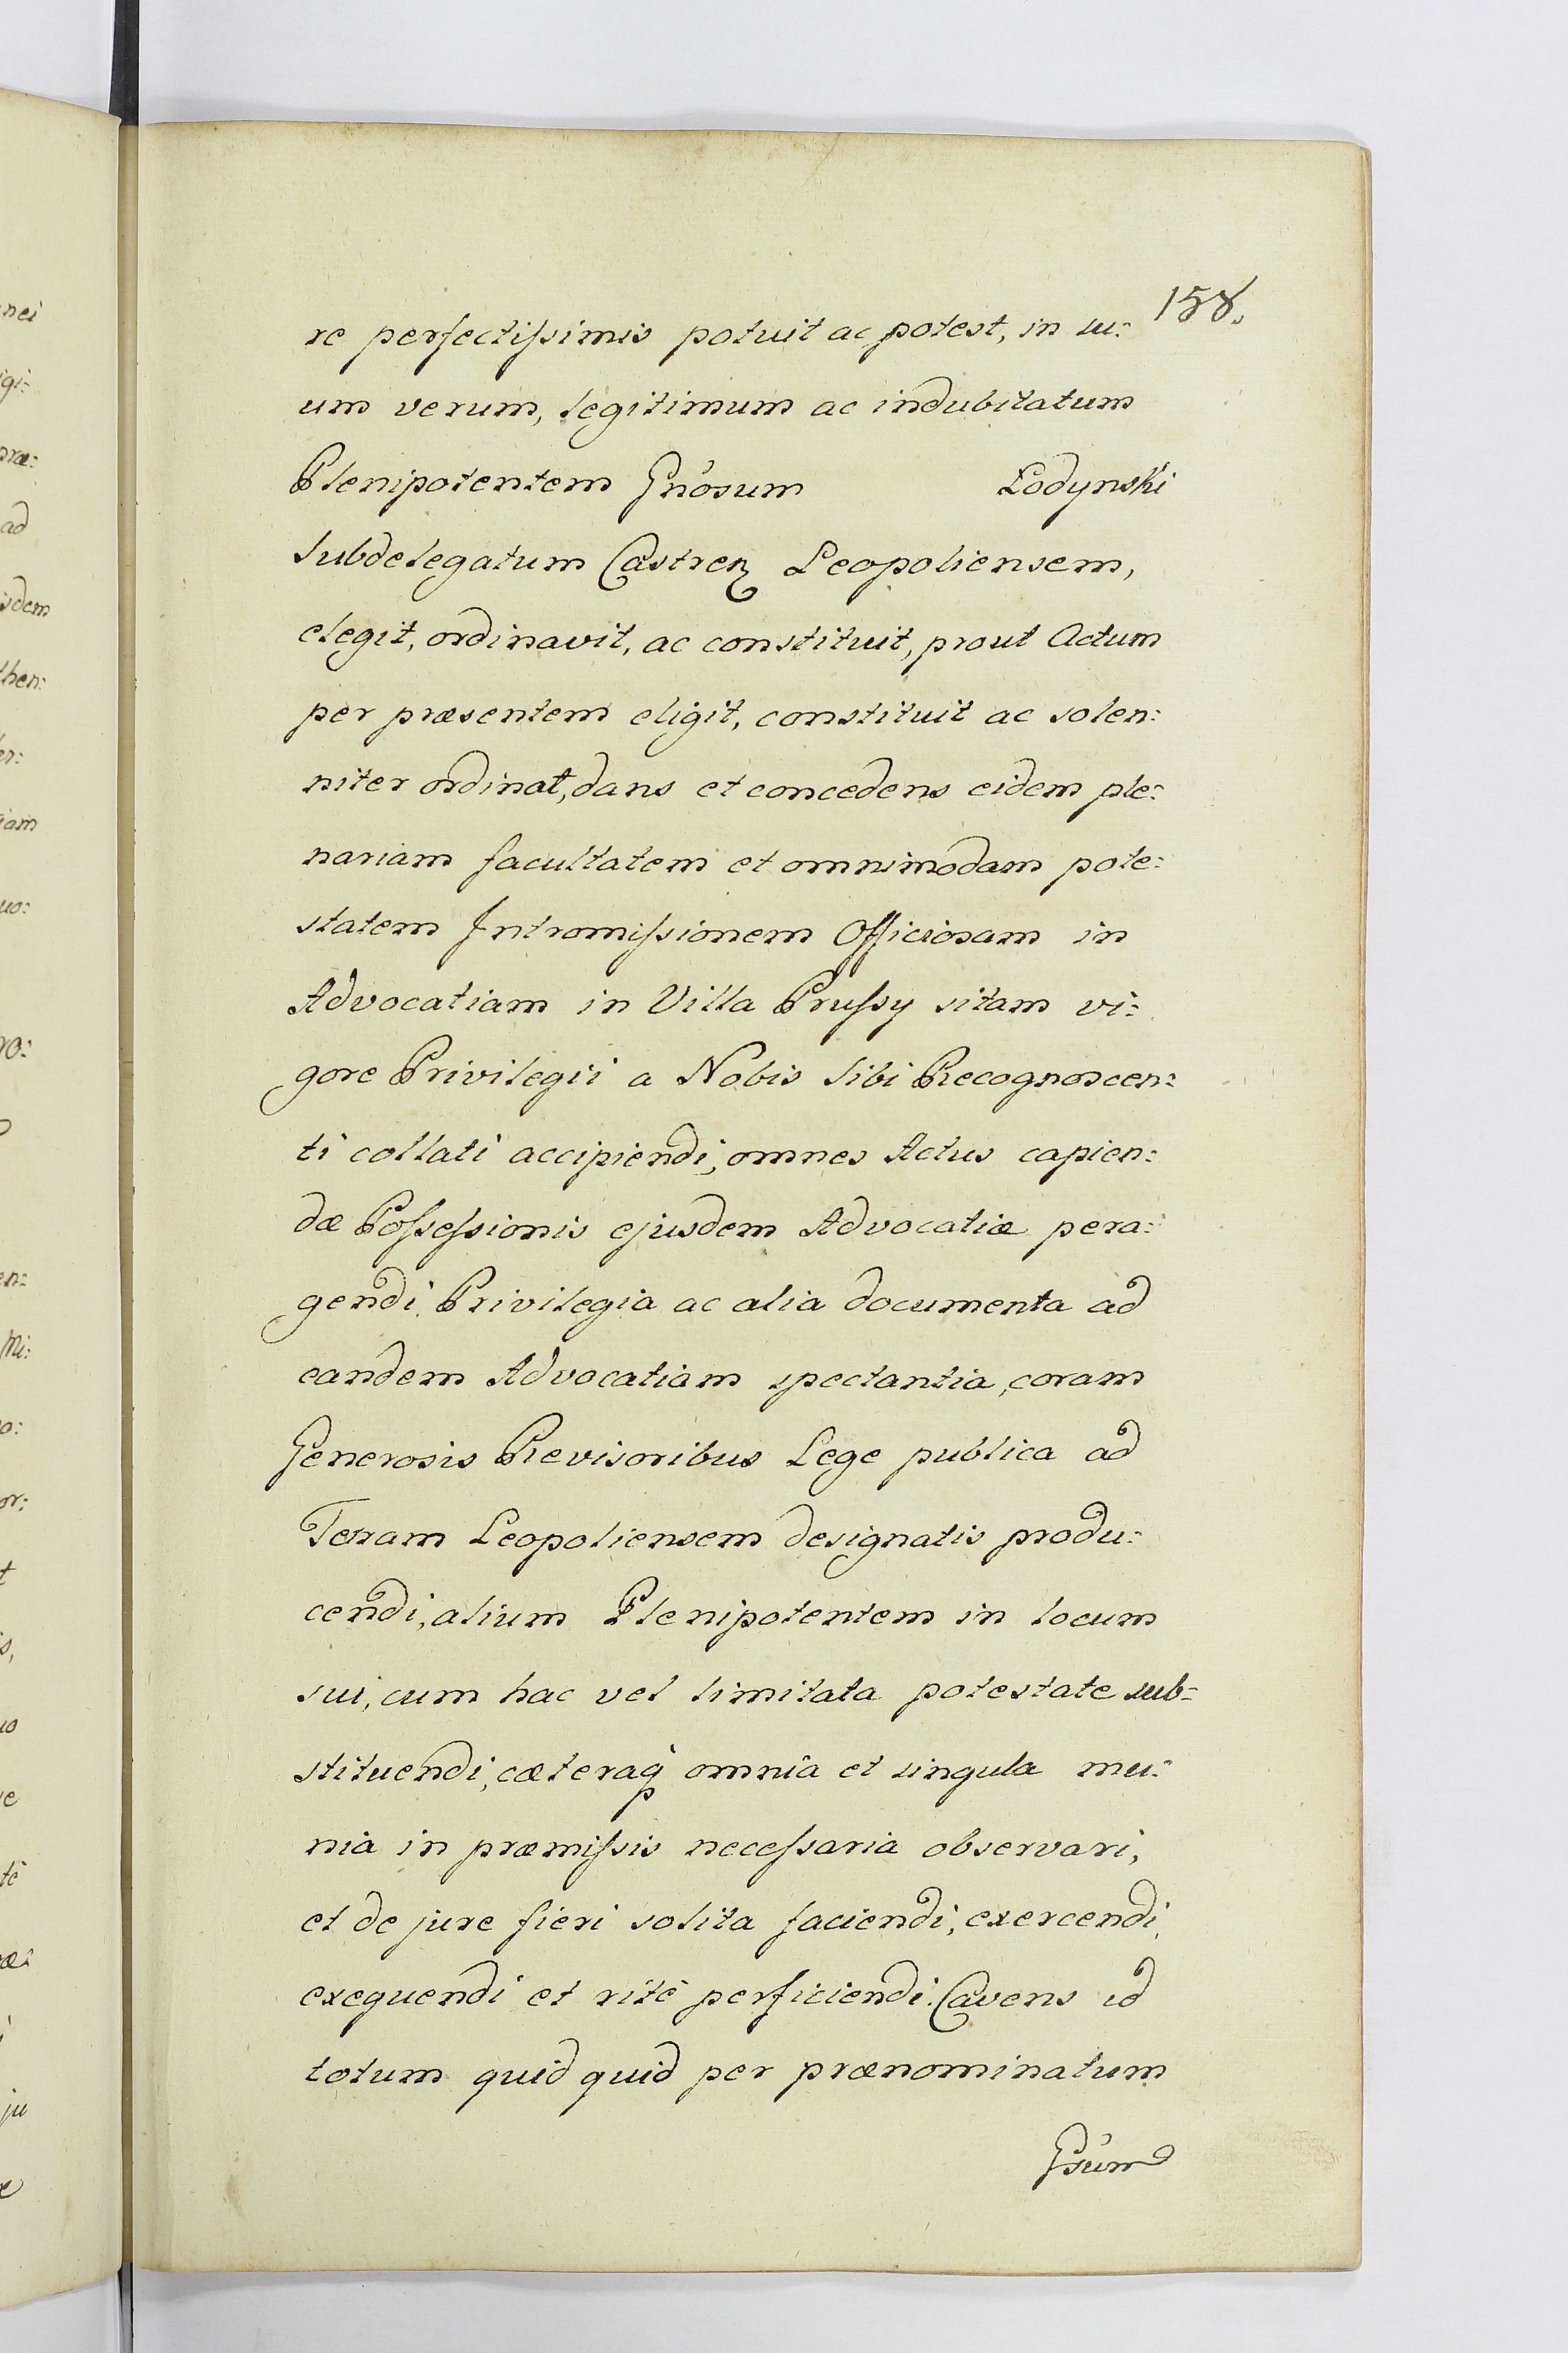 158.
re perfectiſsimis potuit ac potest, in su:
um verum, legitimum ac indubitatum
Plenipotentem Gnôsum Łodynski
Subdelegatum Castreñ Leopoliensem,
elegit, ordinavit, ac constituit, prout Actum
per præsentem eligit, constituit ac solen:
niter ordinat, dans et concedens eidem ple:
nariam facultatem et omnimodam pote:
statem Intromiſsionem Officiosam in
Advocatiam in Villa Pruſsy sitam vi:
gore Privilegii a Nobis Sibi Recognoscen:
ti collati accipiendi, omnes Actus capien:
dæ Poſseſsionis ejusdem Advocatiæ pera:
gendi, Privilegia ac alia documenta ad
eandem Advocatiam spectantia, coram
Generosis Revisoribus Lege publica ad
Terram Leopoliensem designatis produ:
cendi, alium Plenipotentem in locum
sui, cum hac vel limitata potestate sub:
stituendi, cæteraq̀ omnia et singula mu:
nia in præmiſsis neceſsaria observari,
et de jure fieri solita faciendi, exercendi,
exequendi et ritè perficiendi. Cavens id
totum quid quid per prænominatum
Gsûm
nei
igi:
præ:
ad
isdem
then:
iam
uo:
ro:
en:
Mi:
o:
or:
t
s,
ju